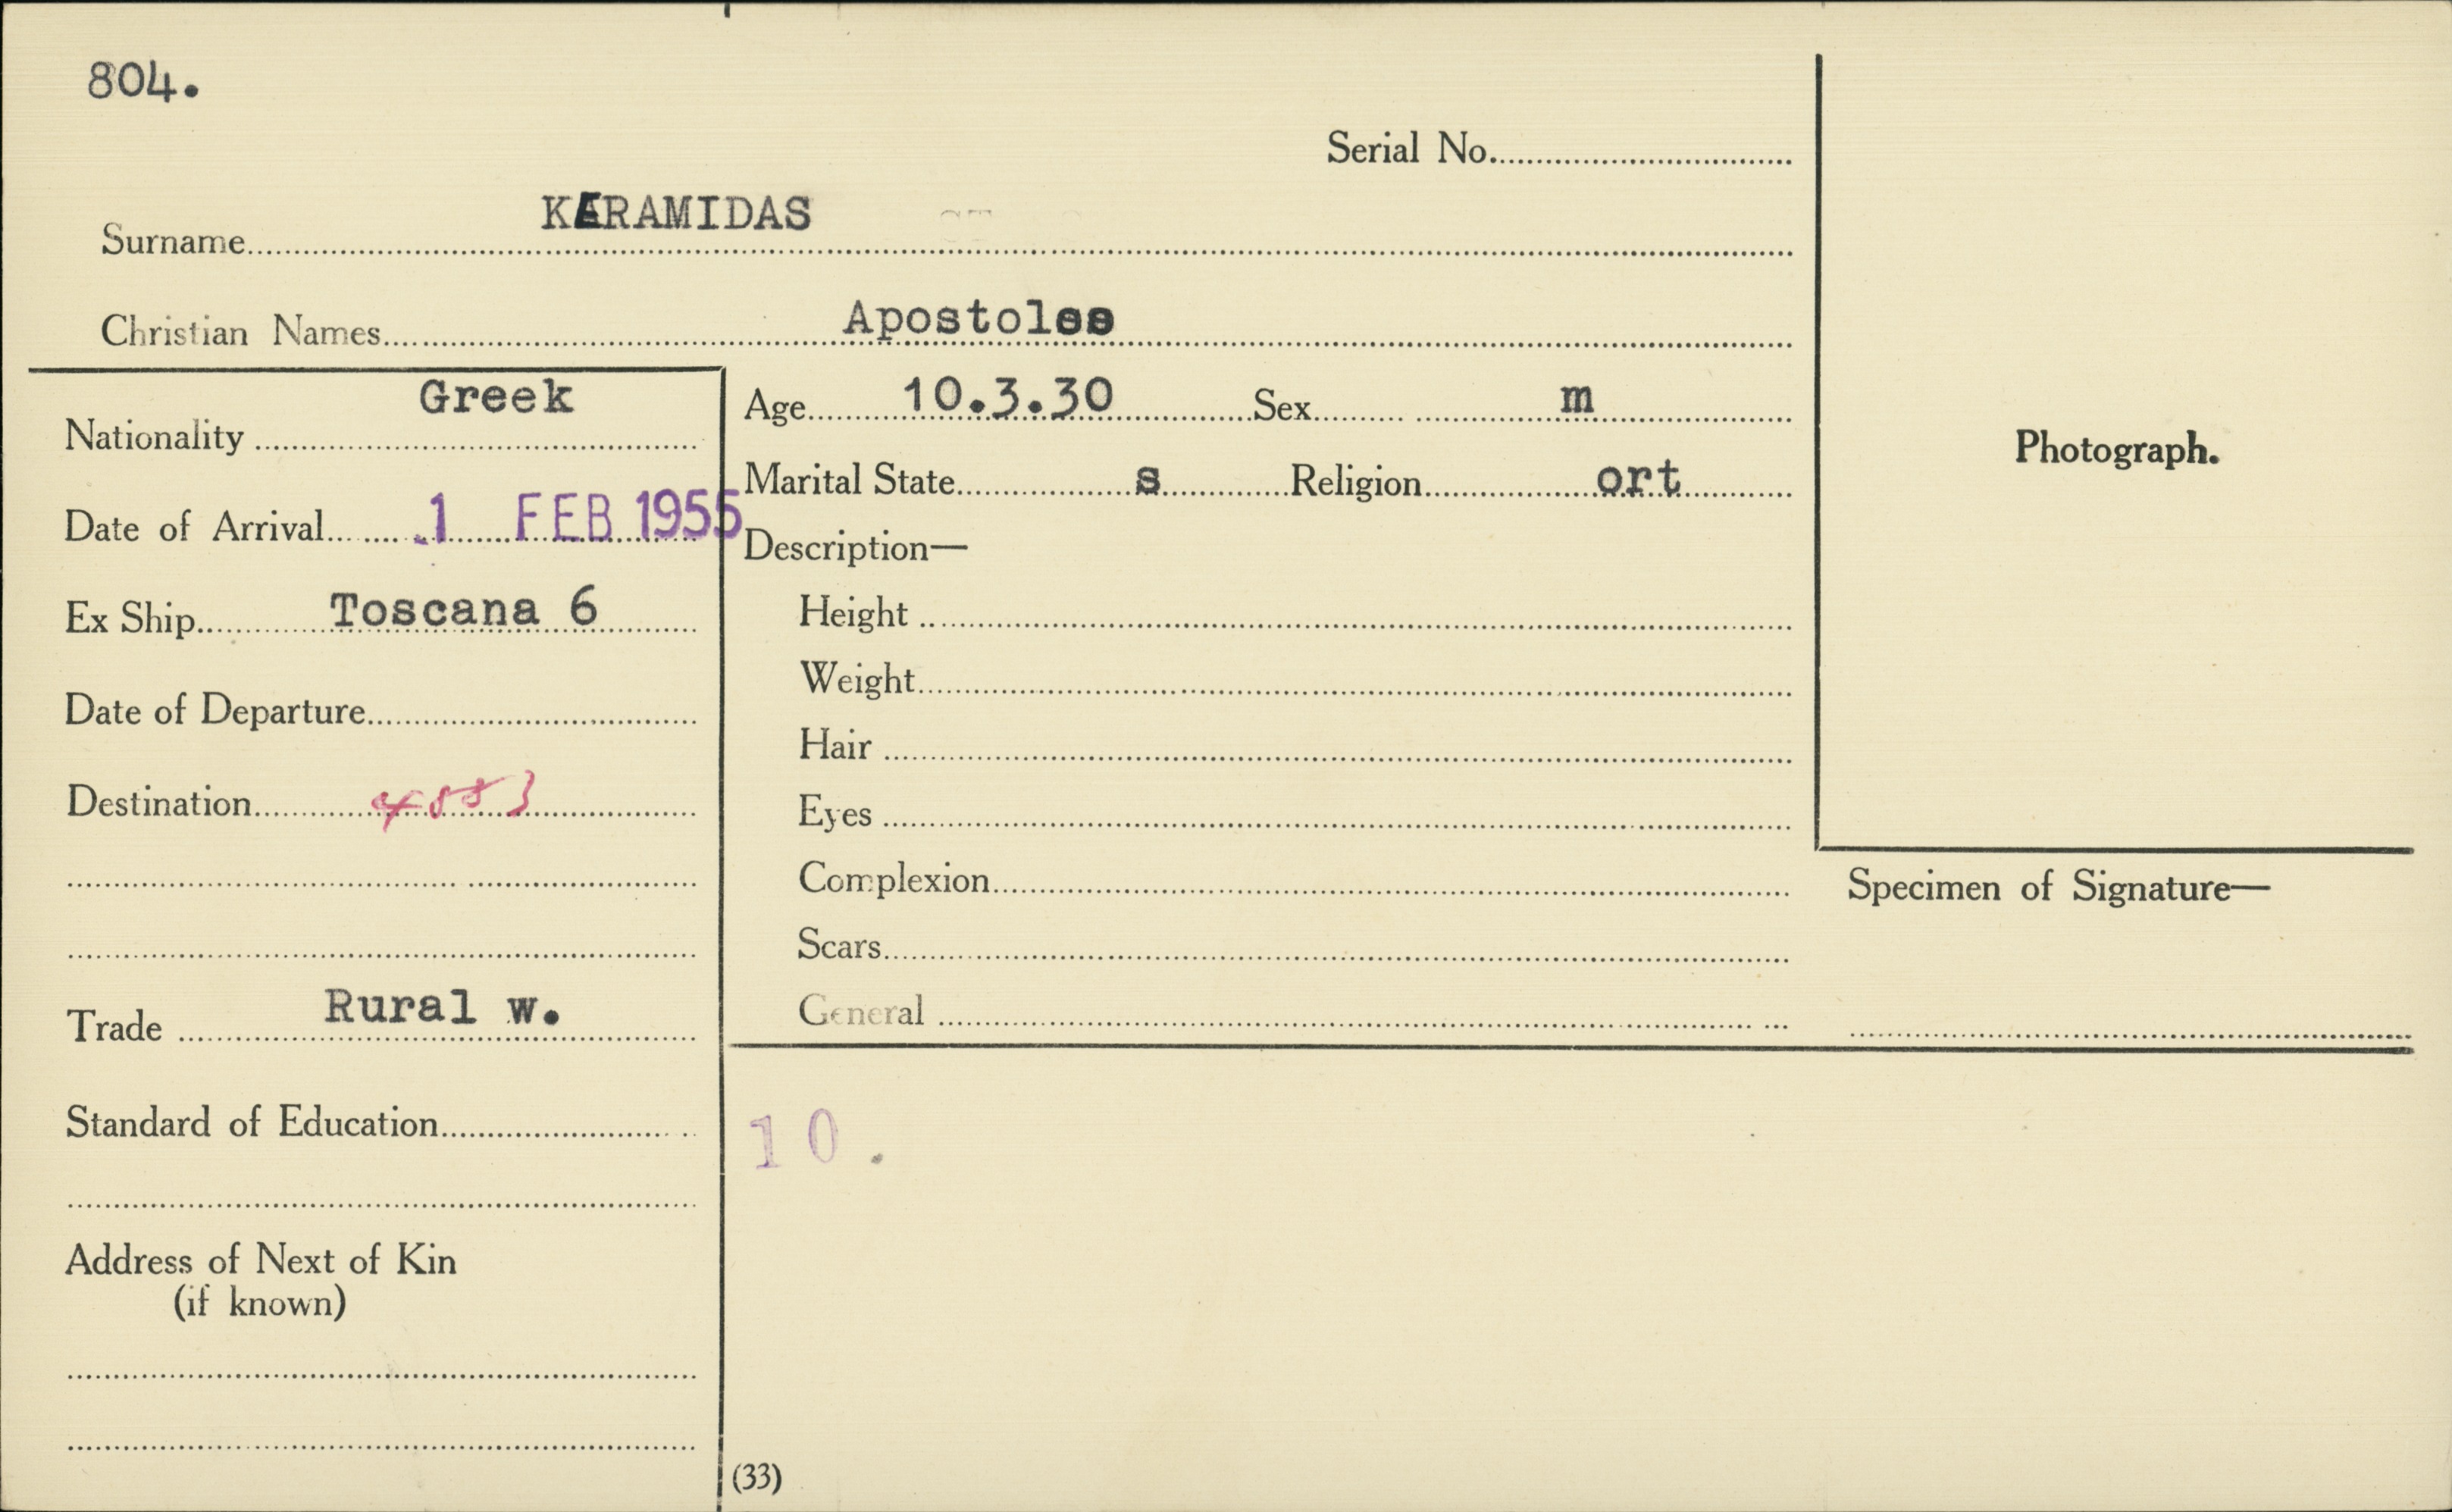 804.
Serial No.
Surname KERAMIDAS
Christian Names Apostolos
Nationality Greek
Age 10.3.30 Sex m
Marital State s Religion ort
Date of Arrival 1 FEB 1955
Description—
Ex Ship Toscana 6
Height
Weight
Date of Departure
Hair
Destination
Eyes
Complexion
Scars
Trade Rural w.
General
Photograph.
Specimen of Signature—
Standard of Education
10.
Address of Next of Kin
(if known)
(33)